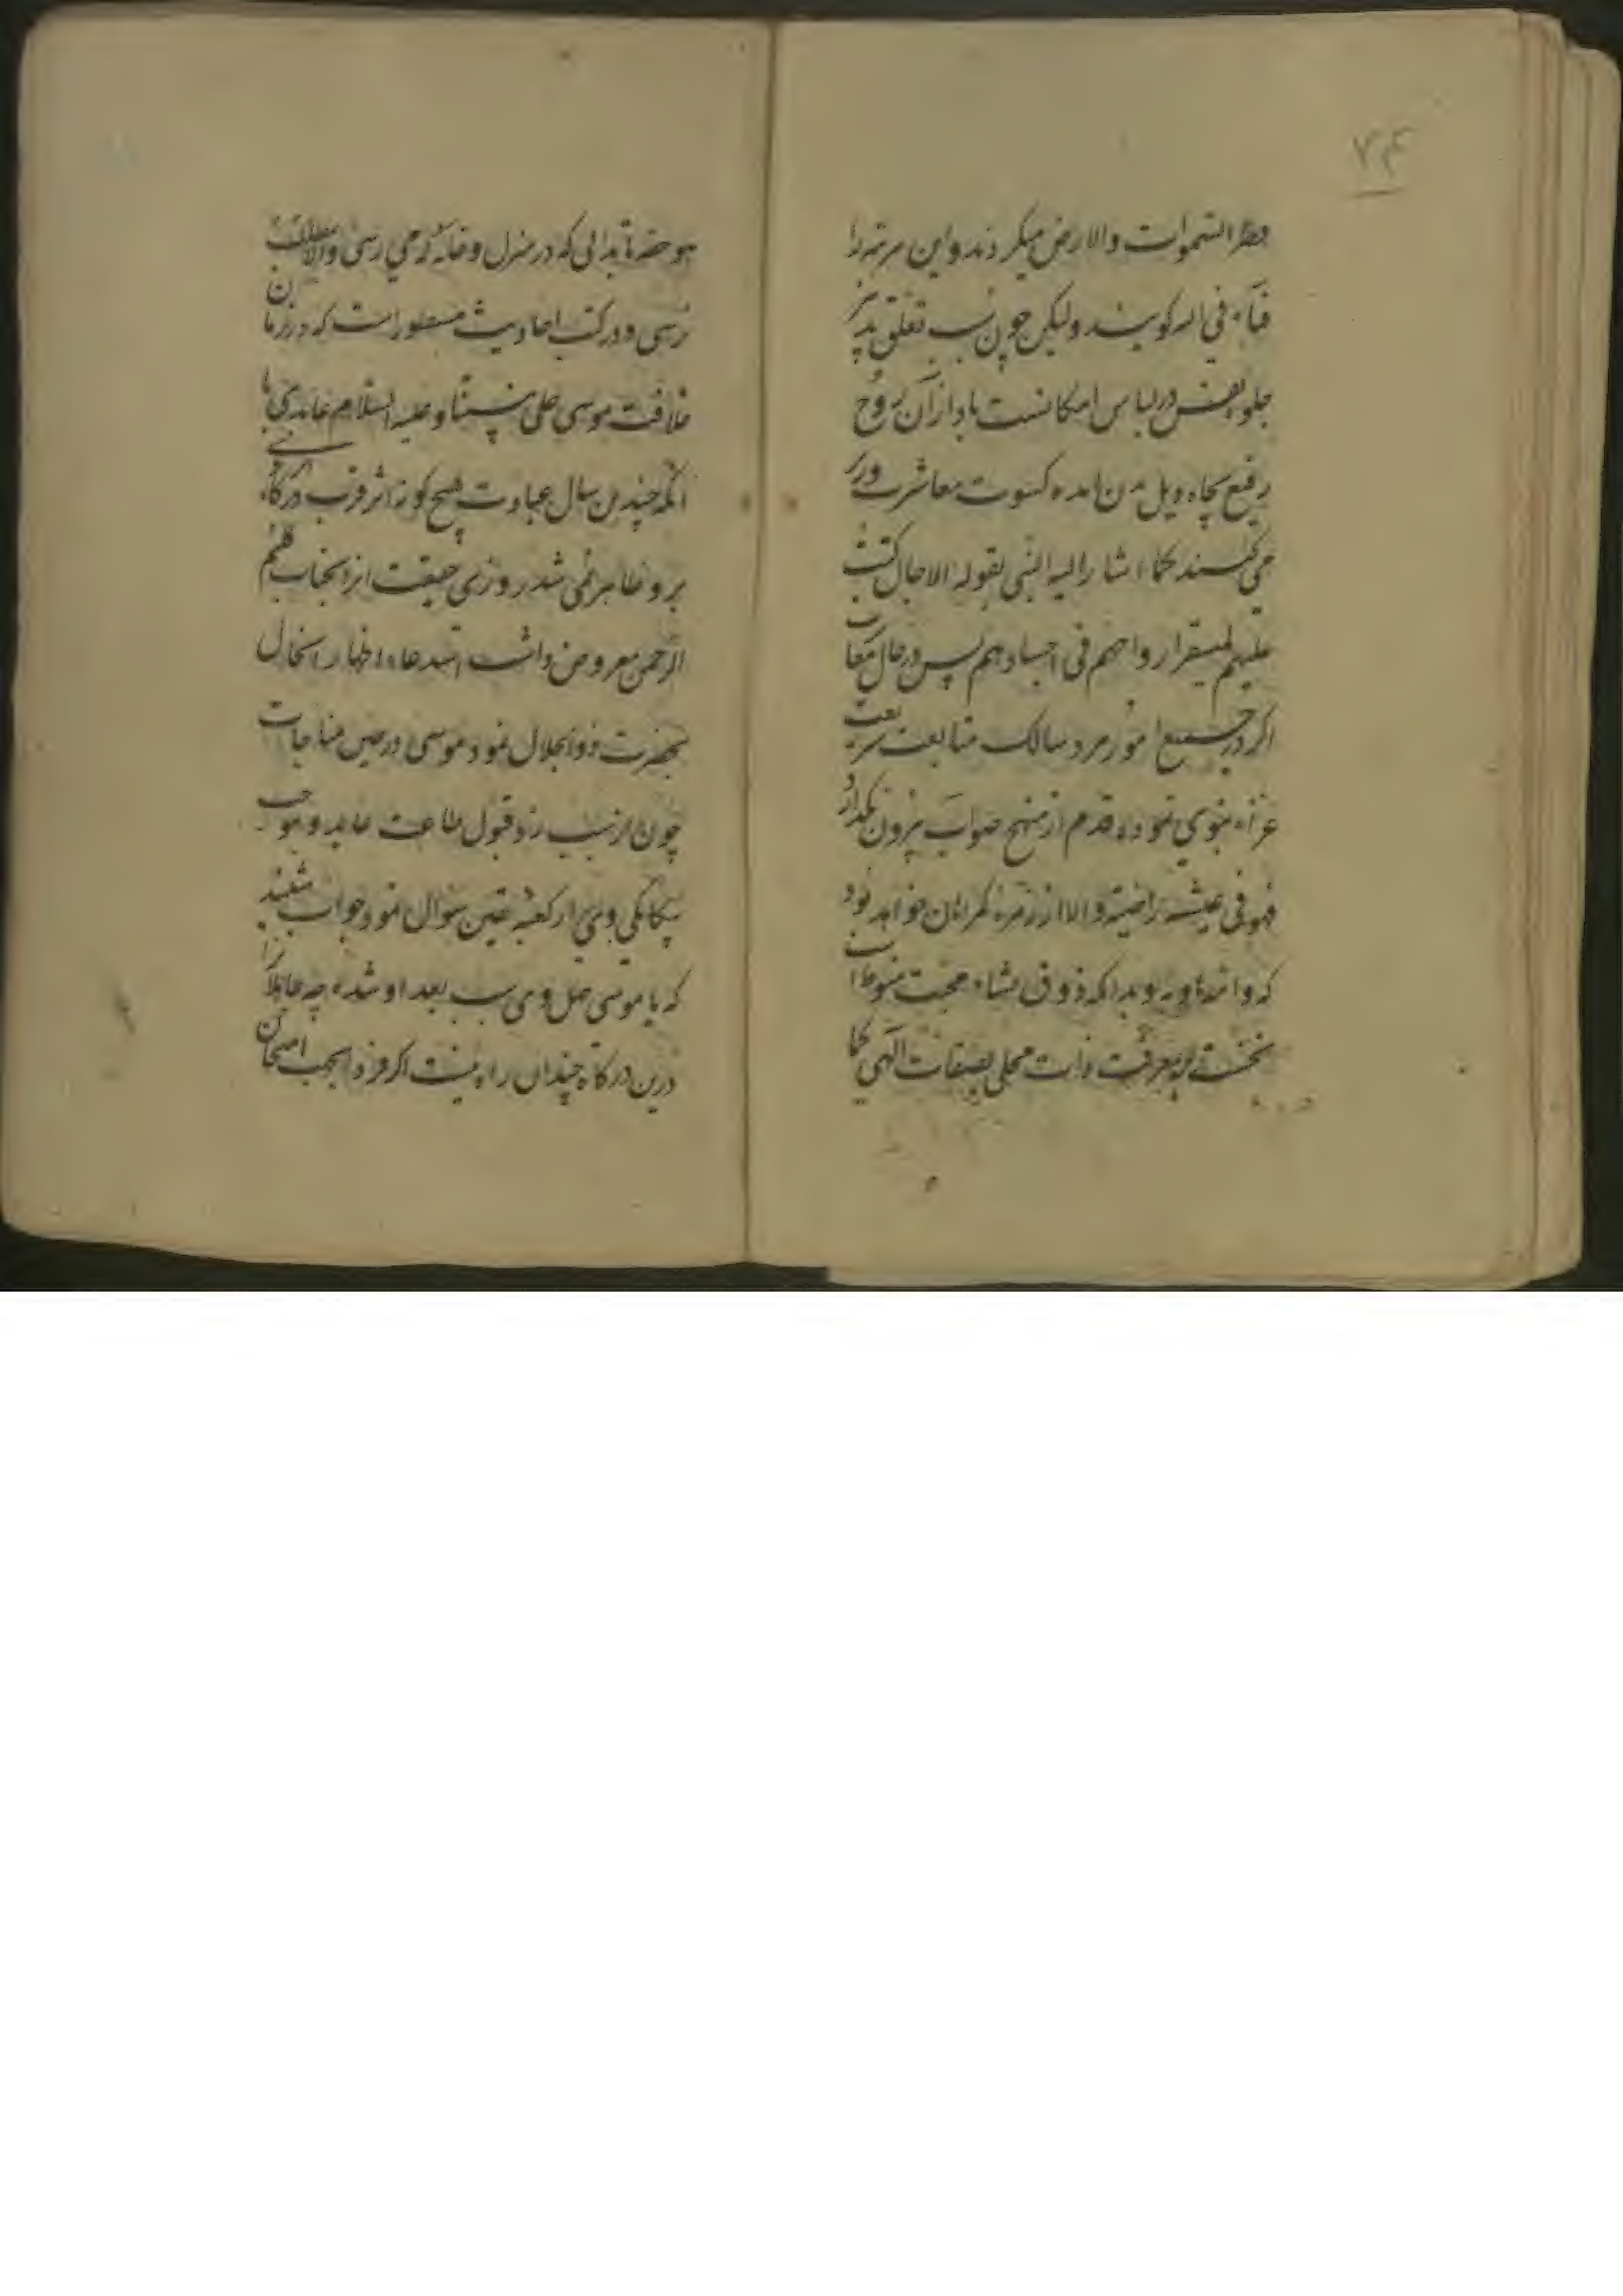 ۷۴
فطر السموات والارض میکردند و این مرتبه را
فناء فی الله کویند ولیکن چون نسب تعلق پذیر
جلو نفس در لباس امکانست باداز آن روح
رفیع بچاه ویل من آمده کسوت معاشرت در
می کنند کما اشار الیه النبی بقوله الاجال کتب
علیهم لیستقر ارواحهم فی اجسادهم پس در حال معاتب
اکر در جمیع امور مرد سالک متابعت شریعت
غراء نبوی نموده قدم از منهج صواب بیرون نکذارد
فهو فی عیشة راضیة والا از زمره کمراهان خواهد بود
که و بدانکه ذوق نشاء محبت منوط است
نخستین بمعرفت ذات محلی بصفات الهی کما
هو حقه تا بدانی که در منزل و خانه که می رسی والا بمطلب
نرسی و در کتب احادیث مسطور است که در زمان
خلافت موسی علی نبینا و علیه السلام عابدی با
آنکه چندین سال عبادت هیچ کونه اثر قرب درکاه
برو ظاهر نمی شد روزی حقیقت این بجناب کلیم
الرحمن معروض داشت استدعاء اظهار اینحال
بحضرت ذوالجلال نمود موسی در حین مناجات
چون از سبب رد قبول طاعت عابد و موجب
بیکانکی وی از کعبه یقین سوال نمود جواب شنید
که یا موسی جهل وی سبب بعد او شده چه جاهلانرا
درین درکاه چندان راه نیست اکر فردا بجهت امتحان